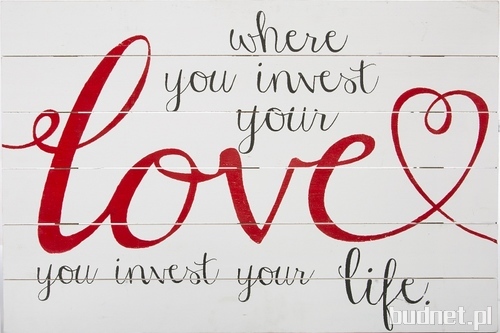 where
you invest
your
love
you invest your life.
budnet.pl